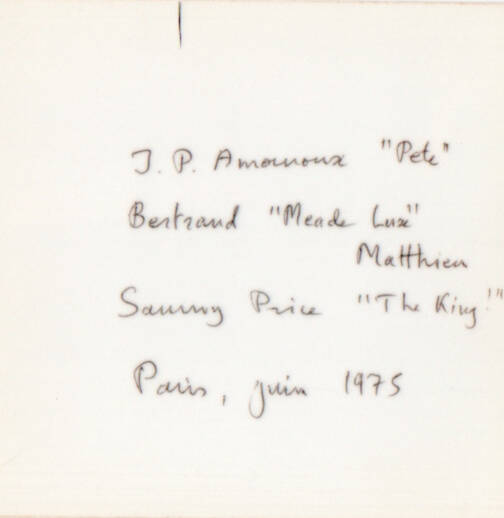 J. P. Amouroux "Pete"
Bertrand "Meade Lux"
Matthieu
Sammy Price "The King!"
Paris, juin 1975